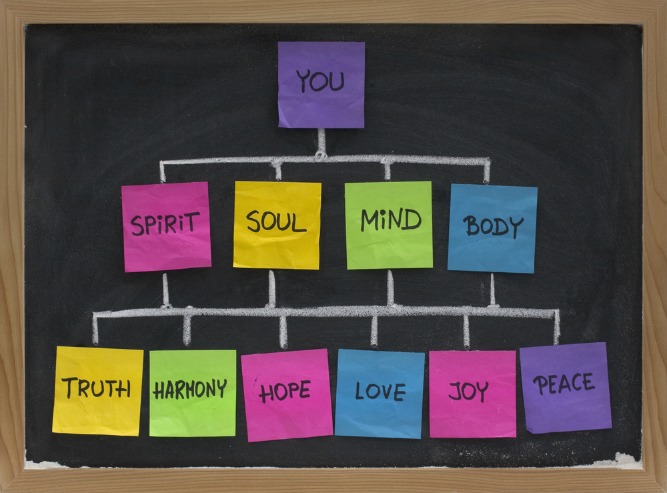 YOU
SPiRiT SOUL MiND BODY
TRUTH HARMONY HOPE LOVE JOY PEACE